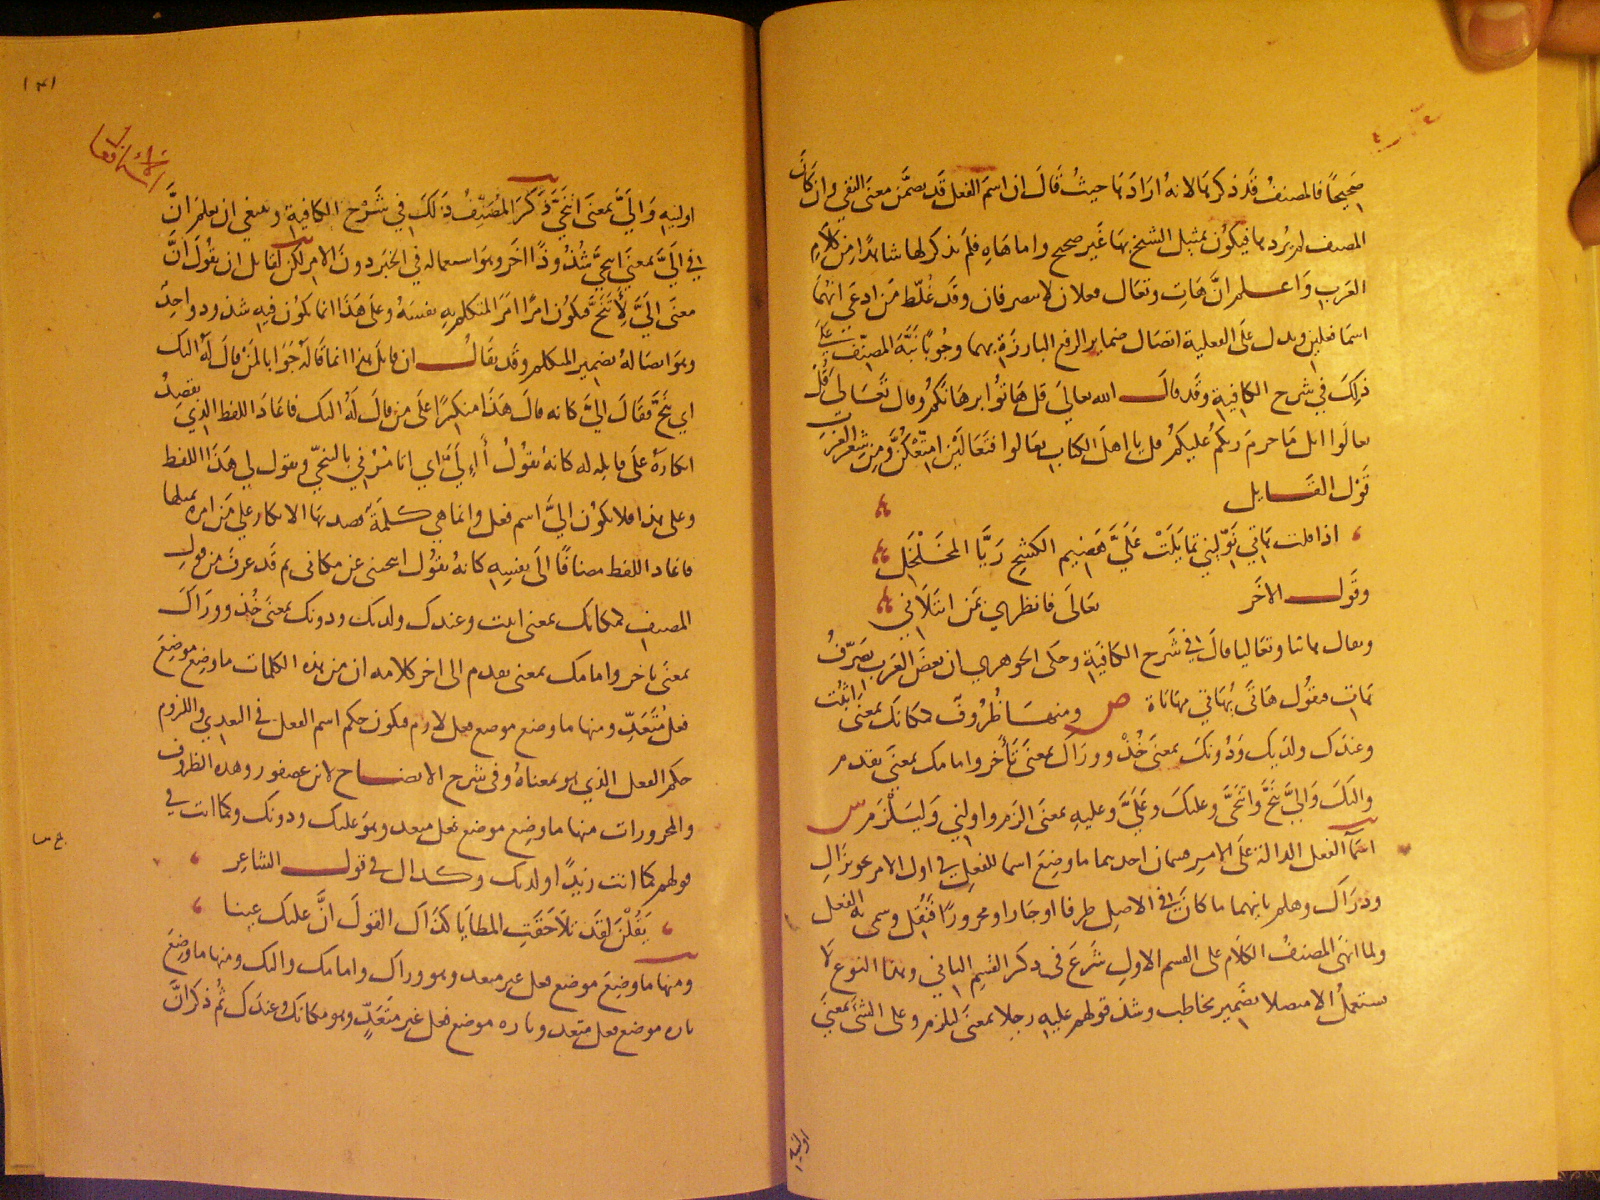 صحيحًا فالمصنف قد ذكرها لانه اراد بها حيث قال ان اسم الفعل قد يضمن معنى النفي وان كان
المصنف لم يرد بها فيكون تمثيل الشيخ بها غير صحيح واما هاه فلم يذكر لها شاهدًا من كلام
العرب واعلم ان هات وتعال فعلان لا يتصرفان وقد غلط من ادعى انهما
اسما فعلين ويدل على الفعلية اتصال ضماير الرفع البارزة بهما وجوبًا نبه المصنف على
ذلك في شرح الكافية وقد قال الله تعالى قل هاتوا برهانكم وقال تعالى قل
تعالوا اتل ما حرم ربكم عليكم قل يا اهل الكتاب تعالوا فتعالين امتعكن ومن شعر العرب
قول القايل
اذا قلت هاتي نوليني تمايلت علي هضيم الكشح ريا المخلخل
وقول الاخر تعالي فانظري بمن ابتلاني
ويقال هاتيا وتعاليا قال في شرح الكافية وحكى الجوهري ان بعض العرب يصرف
هات فيقول هاتى يهاتي مهاتاة ص ومنها ظروف كمكانك بمعنى اثبت
وعندك ولديك ودونك بمعنى خذ ووراك بمعنى تأخر وامامك بمعنى تقدم
واليك والي تنح واتنحى وعليك وعلي وعليه بمعنى الزم واولني وليلزم س
اسما الفعل الدالة على الامر ضربان احدهما ما وضع اسما للفعل في اول الامر نحو نزال
ودراك وهلم ثانيهما ما كان في الاصل ظرفا او جارا ومجرورًا فنقل وسمي به الفعل
ولما انهى المصنف الكلام على القسم الاول شرع في ذكر القسم الثاني وهذا النوع لا
يستعمل الا متصلا بضمير مخاطب وشذ قولهم عليه رجلا بمعنى ليلزم وعلي الشي بمعنى
اوليه
١٣١
اوليه والي بمعنى اتنحى ذكر المصنف ذلك في شرح الكافية وينبغي ان يعلم ان
في الي بمعنى اتنحى شذوذًا اخر وهو استعماله في الخبر دون الامر لكن لقايل ان يقول ان
معنى الي لأتنح فيكون امرًا امر المتكلم به نفسه وعلى هذا انما يكون فيه شذوذ واحد
وهو اتصاله بضمير المتكلم وقد يقال ان قايل هذا انما قاله جوابا لمن قال له اليك
اي تنح فقال الي كانه قال هذا منكرًا على من قال له اليك فاعاد اللفظ الذي يقصد
انكاره على قايله له كانه يقول أإلي اي اتامرني بالتنحي وتقول لي هذا اللفظ
وعلى هذا فلا يكون الي اسم فعل وانما هي كلمة قصد بها الانكار على من امره بمثلها
فاعاد اللفظ مضافًا الى نفسه كانه يقول اتنحى عن مكاني ثم قد عرف من قول
المصنف كمكانك بمعنى اثبت وعندك ولديك ودونك بمعنى خذ ووراك
بمعنى تاخر وامامك بمعنى تقدم الى اخر كلامه ان من هذه الكلمات ما وضع موضع
فعل متعد ومنها ما وضع موضع فعل لازم فيكون حكم اسم الفعل في التعدي واللزوم
حكم الفعل الذي هو بمعناه وفي شرح الايضاح لابن عصفور وهذه الظروف
والمجرورات منها ما وضع موضع فعل متعد وهو عليك ودونك وكما انت في
قولهم كما انت زيدًا ولديك وكذاك في قول الشاعر
يقلن لقد تلاحقت المطايا كذاك القول ان عليك عينا
ومنها ما وضع موضع فعل غير متعد وهو وراك وامامك واليك ومنها ما وضع
تارة موضع فعل متعد وتارة موضع فعل غير متعد وهو مكانك وعندك ثم ذكر ان